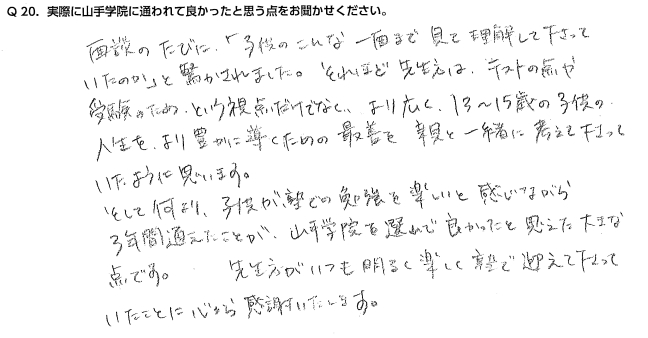 Q 20. 実際に山手学院に通われて良かったと思う点をお聞かせください。
面談のたびに、「子供のこんな一面まで見て理解して下さって
いたのか」と驚かされました。それほど先生方は、テストの点や
受験のため、という視点だけでなく、より広く、13～15歳の子供の
人生を、より豊かに導くための最善を親と一緒に考えて下さって
いたように思います。
そして何より、子供が塾での勉強を楽しいと感じながら
3年間通えたことが、山手学院を選んで良かったと思えた大きな
点です。 先生方がいつも明るく楽しく塾で迎えて下さって
いたことに心から感謝いたします。